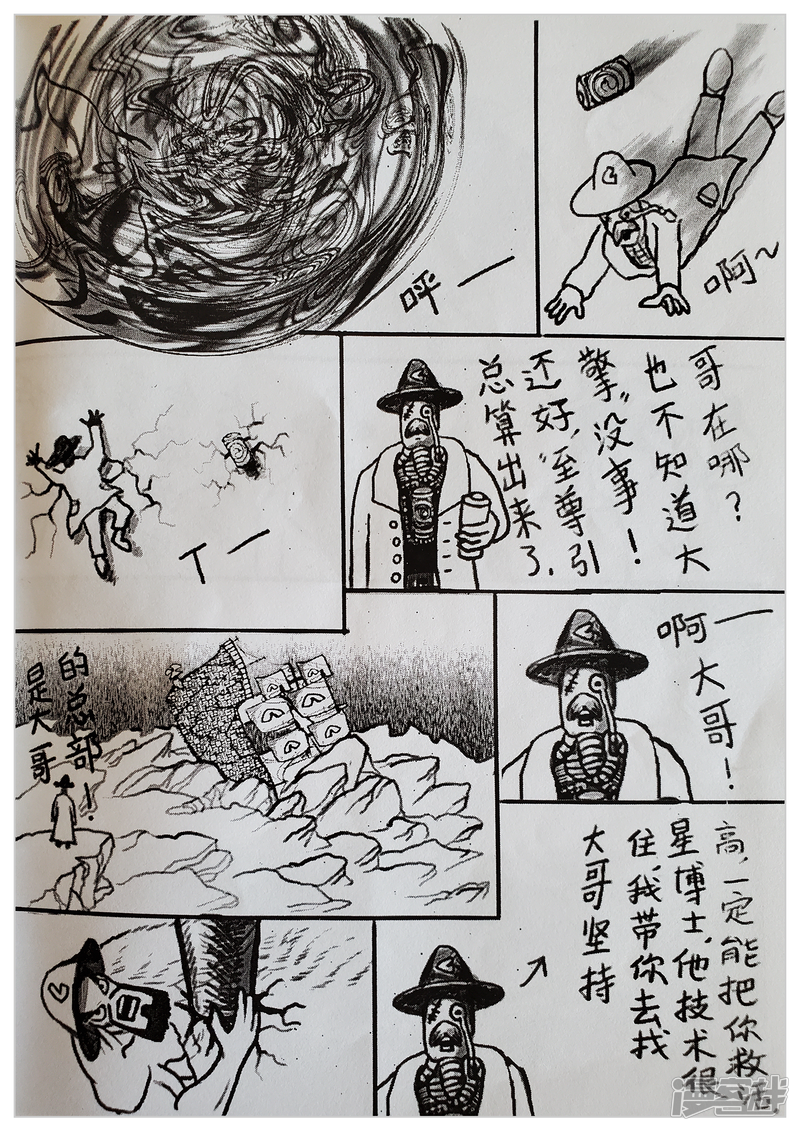 呼—
啊~
丁—
总算出来了,
还好,“至尊引
擎”没事!
也不知道大
哥在哪?
是大哥
的总部!
啊—
大哥!
大哥坚持
住,我带你去找
星博士,他技术很
高,一定能把你救活.
漫客栈